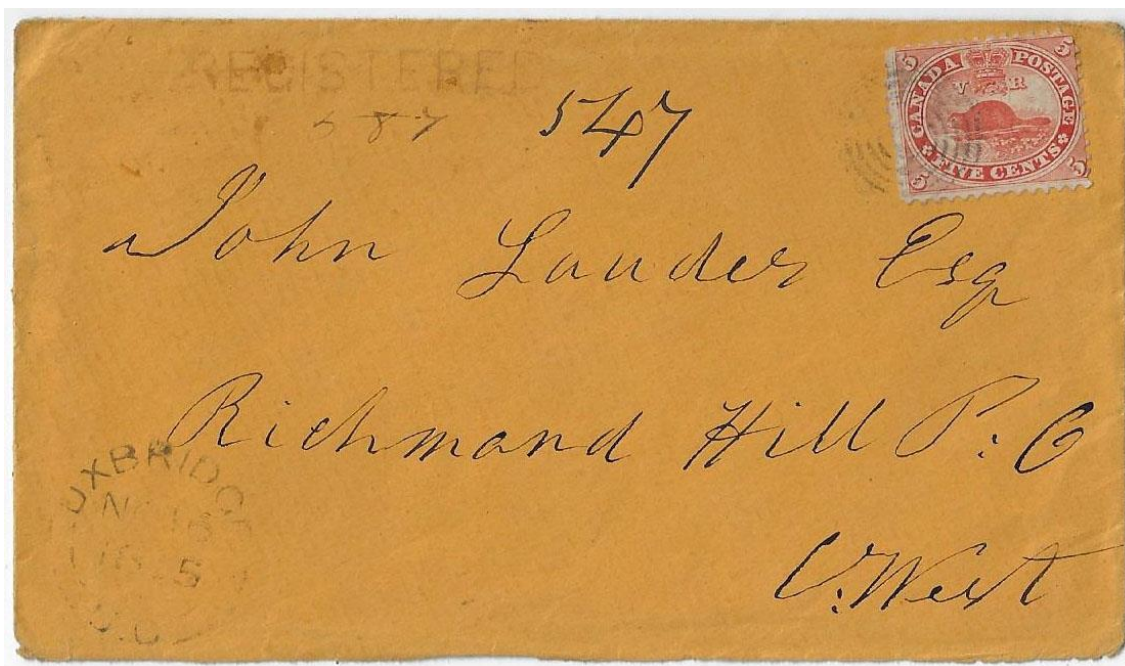 REGISTERED
587 547
5 CANADA POSTAGE 5
V R
5 FIVE CENTS 5
John Lauder Esq
Richmond Hill P.O
C. West
UXBRIDGE
NO 16
5
U.C